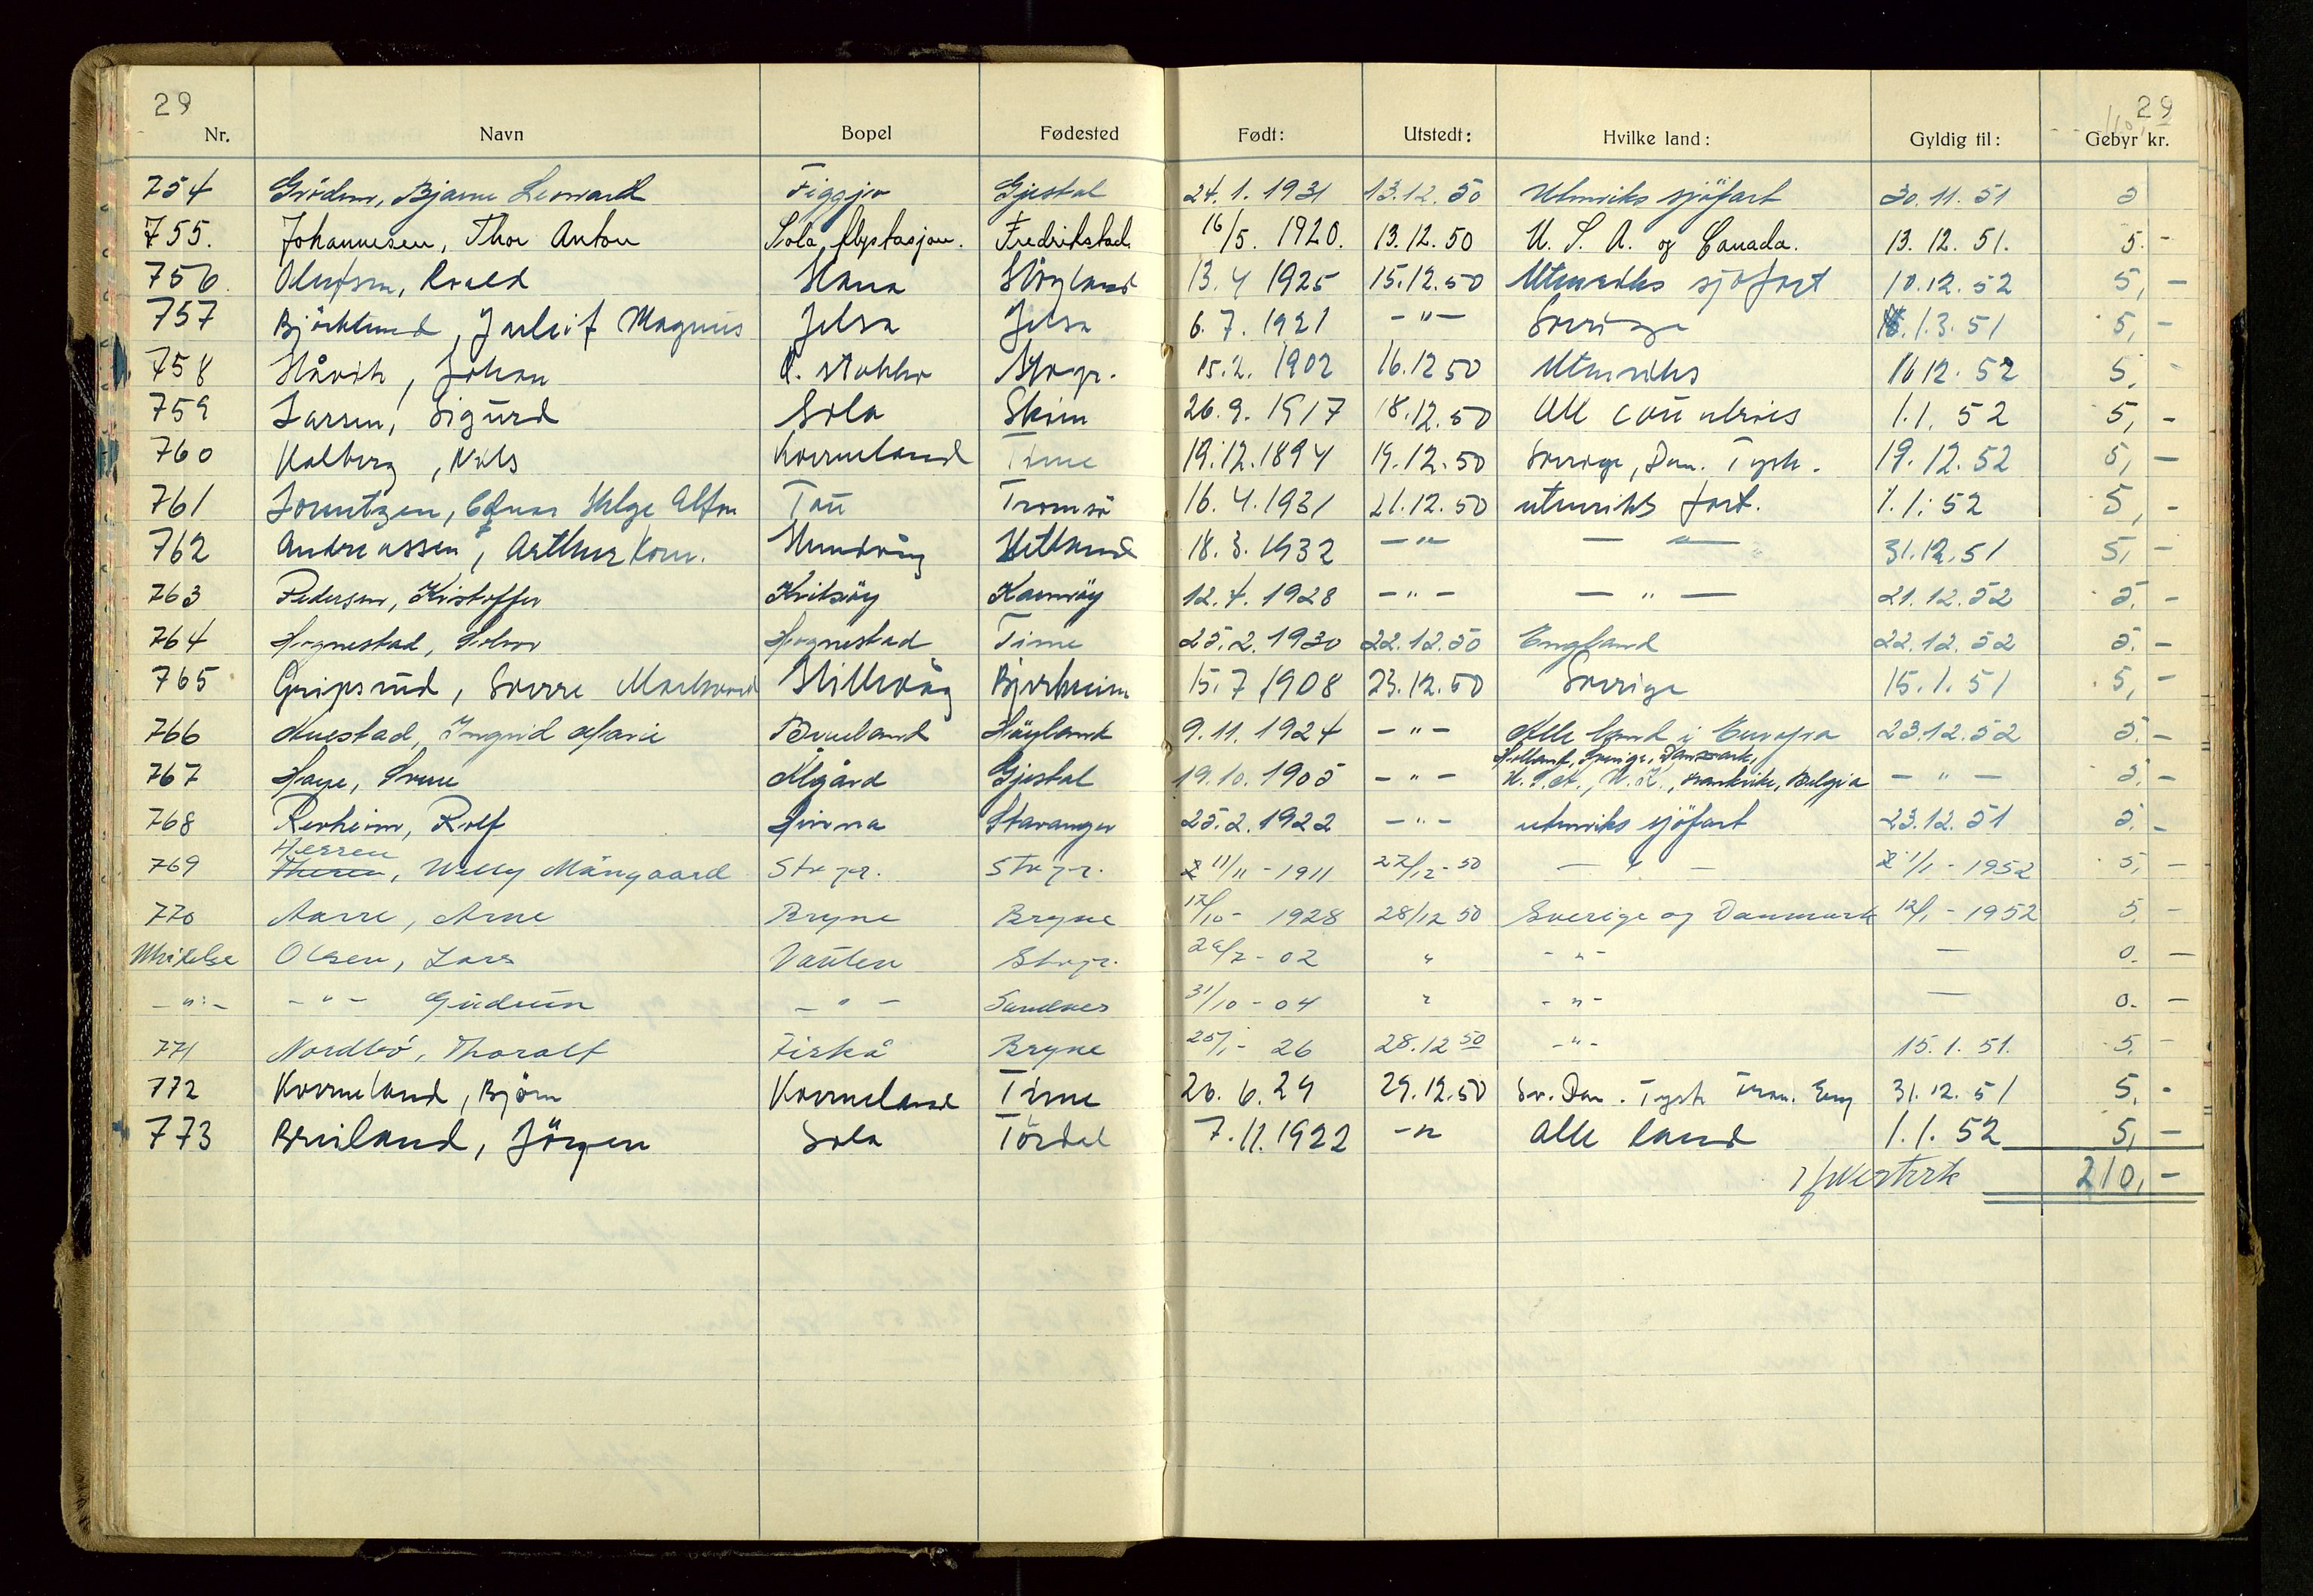 29 29
Nr. Navn Bopel Fødested Født: Utstedt: Hvilke land: Gyldig til: Gebyr kr.
754 Grödem, Bjarne Leonard Figgjo Gjestal 24.1.1931 13.12.50 Utenriks sjöfart 30.11.51 5
755. Johannesen, Thor Anton Sola flystasjon. Fredrikstad. 16/5. 1920. 13.12.50 U.S.A. og Canada. 13.12.51. 5.-
756. Olufsen, Roald Hana Höyland 13.4 1925 15.12.50 Utenriks sjöfart 10.12.52 5,-
757 Björklund, Jarleif Magnus Jelsa Jelsa 6.7.1921 -"- Sverige 1.3.51 5,-
758 Håvik, Johan Stvgr. 15.2.1902 16.12 50 Utenriks 16 12.52 5.-
759 Larsen, Sigurd Sola Skien 26.9.1917 18.12.50 All countries 1.1.52 5,-
760 Kalberg, Nils Kverneland Time 19.12.1894 19.12.50 Sverige, Dan. Tysk. 19.12.52 5,-
761 Lorentzen, Helge Alfon Tau Tromsö 16.4.1931 21.12.50 utenriks fart. 1.1.52 5,-
762 Andreassen, Arthur Korn. Hundvåg Hetland 18.3.1932 -"- -"- 31.12.51 5,-
763 Pedersen, Kristoffer Kvitsöy Karmöy 12.4.1928 -"- -"- 21.12.52 5.-
764 Hognestad, Hognestad Time 25.2.1930 22.12.50 England 22.12.52 5.-
765 Gripsrud, Sverre Stillvåg Bjerkreim 15.7 1908 23.12.50 Sverige 15.1.51 5,-
766 Auestad, Ingrid Marie Brueland Höyland 9.11.1924 -"- Alle land i Europa 23.12.52 5.-
Holland, Sverige, Danmark,
767 Haye, Sverre Ålgård Gjestal 19.10.1905 -"- U.S.A., U.K., Frankrike, Belgia -"- 5.-
768 Revheim, Rolf Hinna Stavanger 25.2.1922 -"- utenriks sjöfart 23.12.51 5.-
Herren
769 Theren, Willy Mångaard Stvgr. Stvgr. 11/11 - 1911 27/12-50 -"- 1/1 - 1952 5,-
770 Aarre, Arne Bryne Bryne 12/10- 1928 28/12 50 Sverige og Danmark 12/1 - 1952 5.-
Utvidelse Olsen, Lars Vaulen Stvgr. 29/7 - 02 " -"- — 0.-
-":- -"- Gudrun -"- Sandnes 31/10 - 04 " -"- — 0.-
771 Nordbö, Thoralf Fiskå Bryne 25/1- 26 28.12 50 -"- 15.1.51. 5.-
772 Kverneland, Björn Kverneland Time 26.6.29 29.12.50 Sv. Dan. Tysk Fran. Eng 31.12.51 5.-
773 Brueland, Jörgen Sola Tördal 7.11.1922 -"- alle land 1.1.52 5,-
210,-